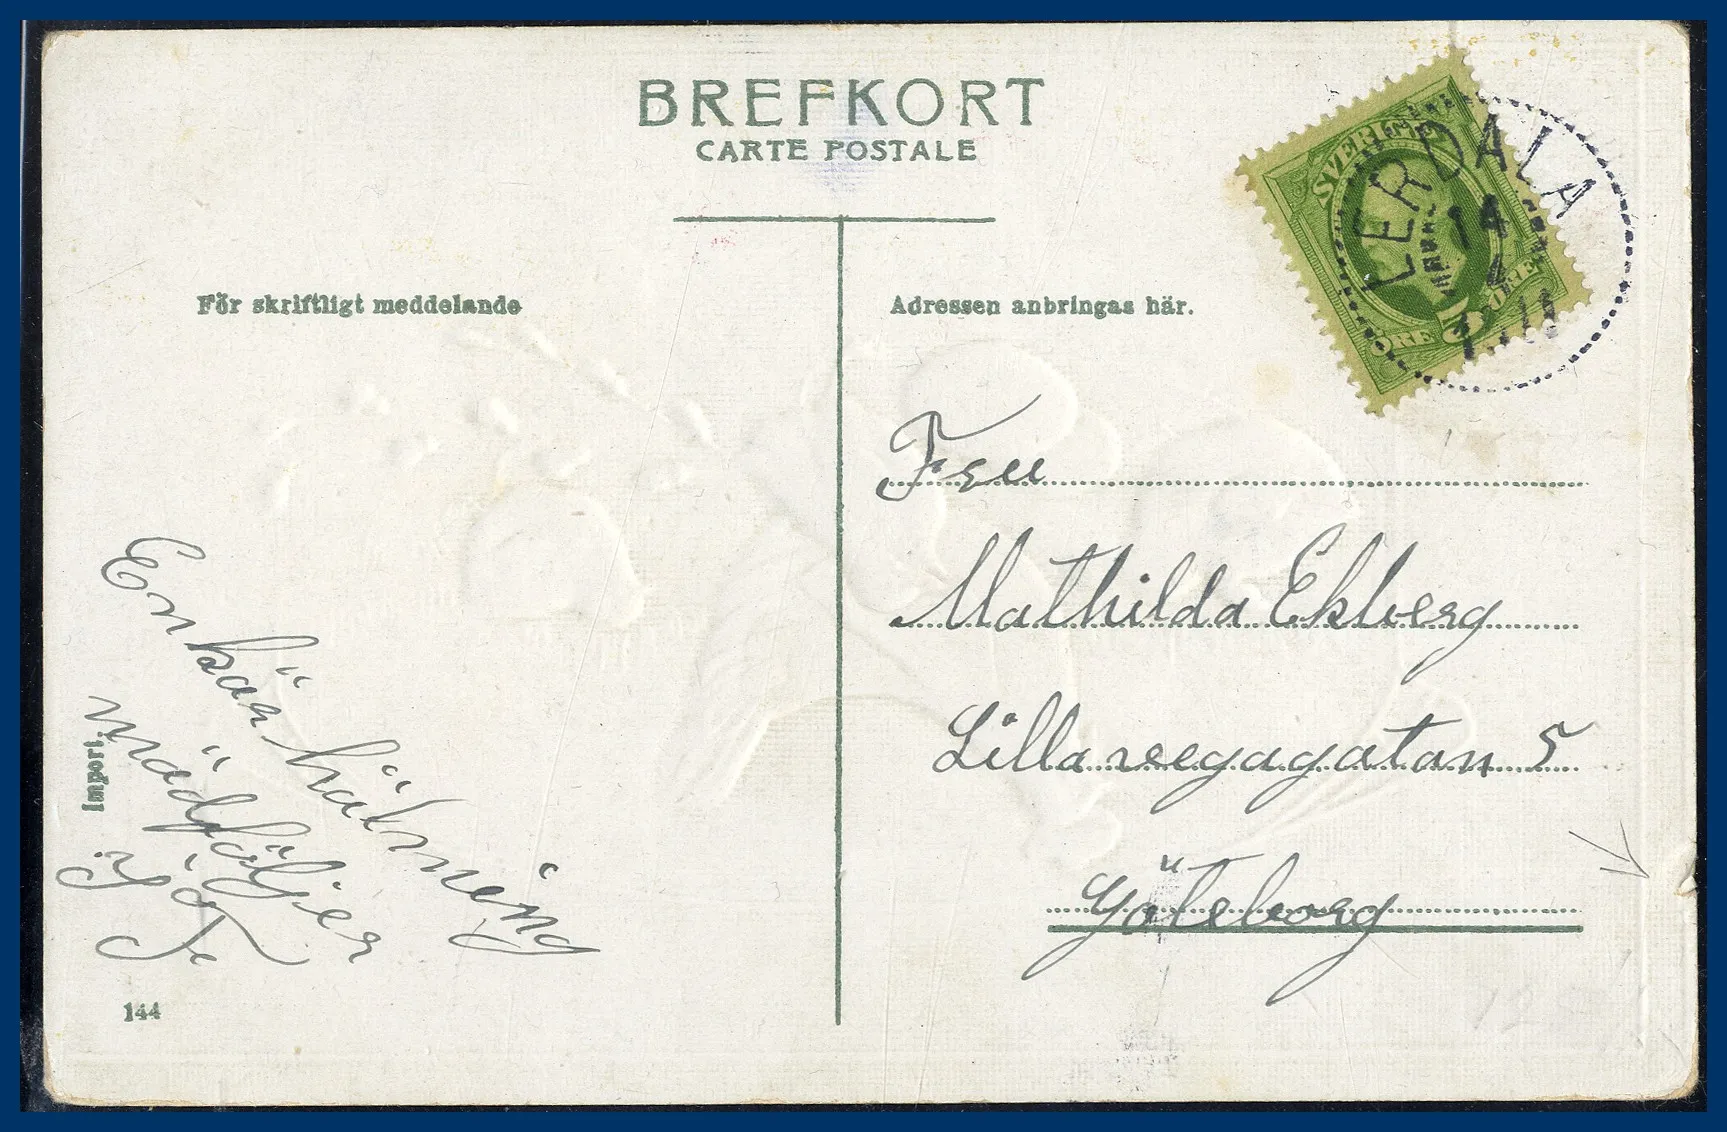 BREFKORT
CARTE POSTALE
För skriftligt meddelande
Adressen anbringas här.
SVERIGE
ÖRE 5 ÖRE
LERDALA
14
Mathilda Ekberg
Lilla veegagatan 5
Göteborg
En kär hälsning
medföljer
Import.
144